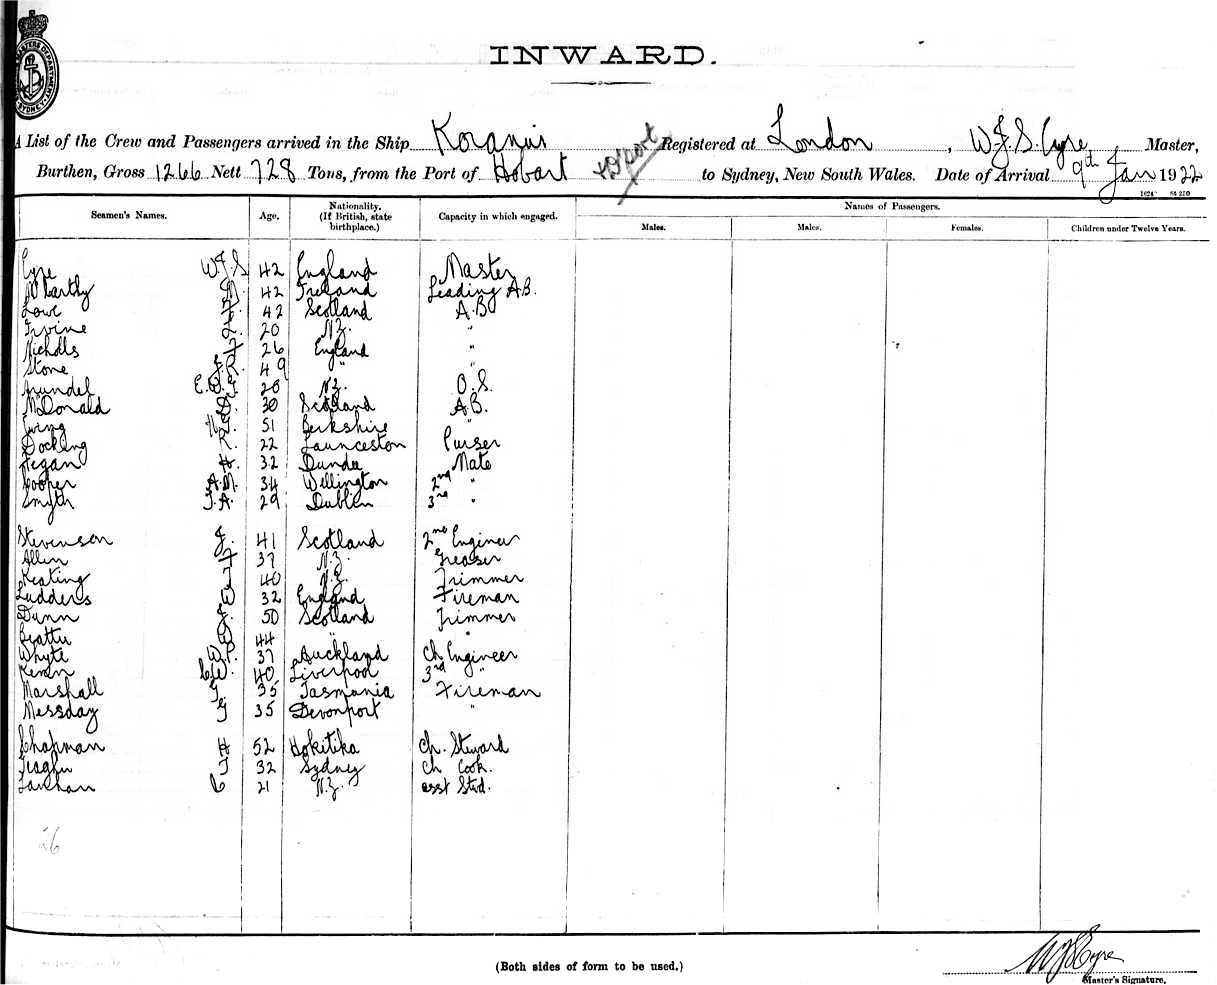 MASTERS DEPARTMENT
SYDNEY
INWARD.
A List of the Crew and Passengers arrived in the Ship Koranui Registered at London, W.J.S. Eyre Master,
Burthen, Gross 1266 Nett 728 Tons, from the Port of Hobart to Sydney, New South Wales. Date of Arrival 9th Jan 1922
Seamen's Names. Age. Nationality. (If British, state birthplace.) Capacity in which engaged. Names of Passengers.
Males. Males. Females. Children under Twelve Years.
Eyre W.J.S 42 England Master
McCarthy 42 Ireland Leading A.B.
Lowe 42 Scotland A.B
Irvine 20 N.Z. "
Nicholls 26 England "
Stone 49 " "
Arundel E.W. 20 N.Z. O.S.
McDonald 30 Scotland A.B.
Ewing 51 Berkshire "
Docking R. 22 Launceston Purser
Hegan H. 32 Dundee Mate
Hooper A.M. 34 Wellington 2nd "
Smyth J.A. 29 Dublin 3rd "
Stevenson J. 41 Scotland 2nd Engineer
Allen 37 N.Z. Greaser
Keating 40 N.Z. Trimmer
Ludders W 32 England Fireman
Dunn J. 50 Scotland Trimmer
Beattie 44 " "
Whyte W.P. 37 Auckland Ch Engineer
C.W. 40 Liverpool 3rd "
Marshall G 35 Tasmania Fireman
Messday G 35 Devonport "
Chapman H 52 Hokitika Ch. Steward
J 32 Sydney Ch Cook.
C 21 N.Z. asst Stwd.
26
(Both sides of form to be used.)
WJS Eyre
Master's Signature.